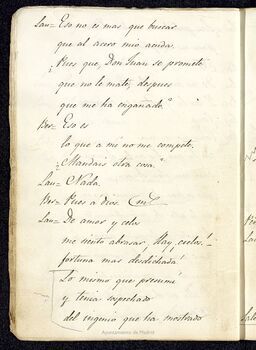 Lau= Eso no es mas que buscar
que al acero mio acuda.
¿Pues que, Don Juan se promete
que no le mate, despues
que me ha engañado?
Ber= Eso es
lo que a mi no me compete.
¿Mandais otra cosa?
Lau= Nada.
Ber= Pues a dios.
Lau= De amor y celos
me siento abrasar, ¡Hay, cielos!
fortuna mas desdichada!
Lo mismo que presumi
y tenia sospechado
del ingenio que ha mostrado
Ayuntamiento de Madrid